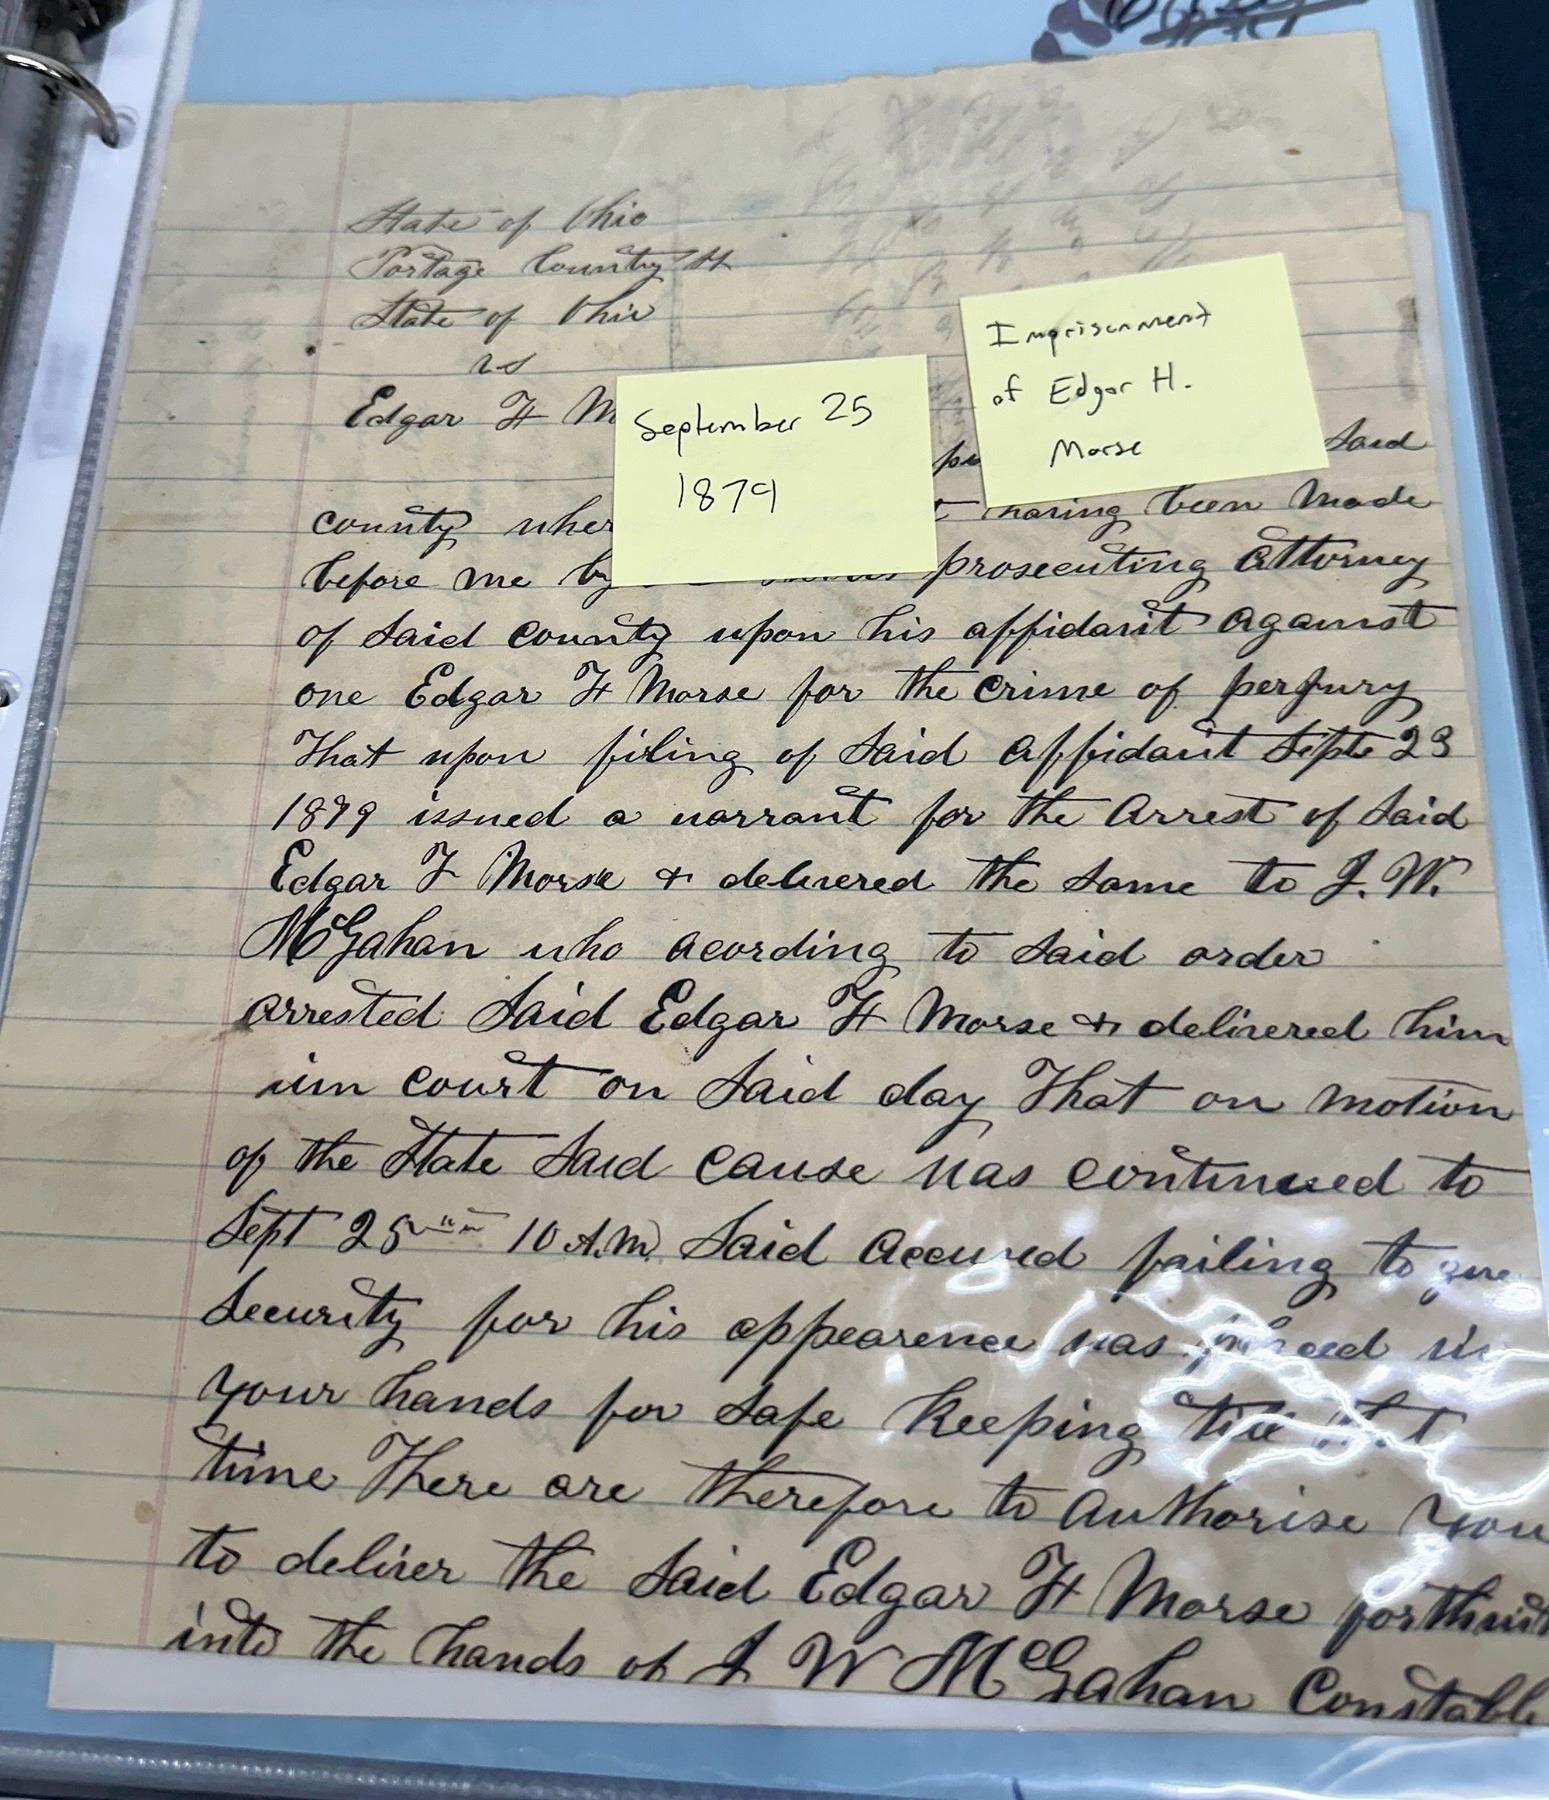 State of Ohio
Portage County SS
State of Ohio
vs
Edgar H M
September 25
1879
Imprisonment
of Edgar H.
Morse
Said
county wher
having been made
before me by
prosecuting Attorney
of Said county upon his affidavit against
one Edgar H Morse for the crime of perjury
That upon filing of Said affidavit Sept 23
1879 issued a warrant for the Arrest of Said
Edgar H Morse & delivered the same to J. W.
McGahan who acording to Said order
arrested Said Edgar H Morse & delivered him
in court on Said day That on motion
of the State Said cause was continued to
Sept 25 10 A.M. Said accused failing to give
Security for his appearence was placed in
your hands for safe keeping till that
time There are therefore to authorise you
to deliver the Said Edgar H Morse forthwith
into the hands of J W McGahan Constable